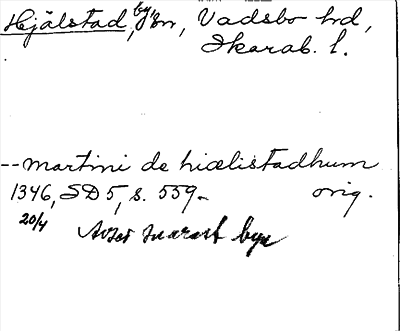 Hjälstad, by, Vadsbo hd,
Skarab. l.
-- martini de hiælistadhum
1346, SD 5, s. 559. orig.
20/4
Avser snarast byn